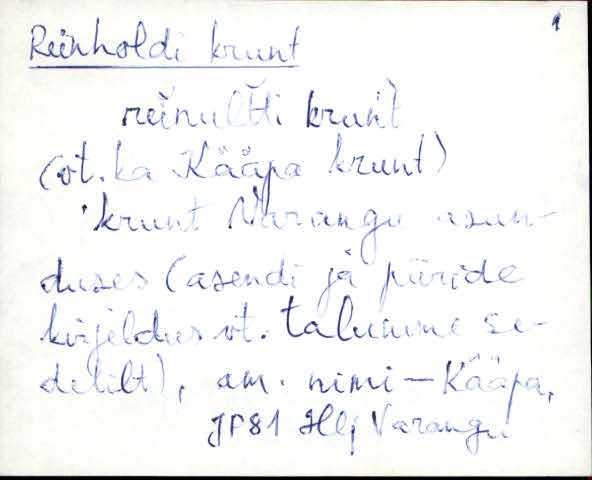 1
Reinholdi krunt
reinulti krunt
(vt. ka Kääpa krunt)
krunt Varangu asun-
duses (asendi ja piiride
kirjeldus vt. talunime se-
delilt), am. nimi – Kääpa,
JP81 Hlj Varangu